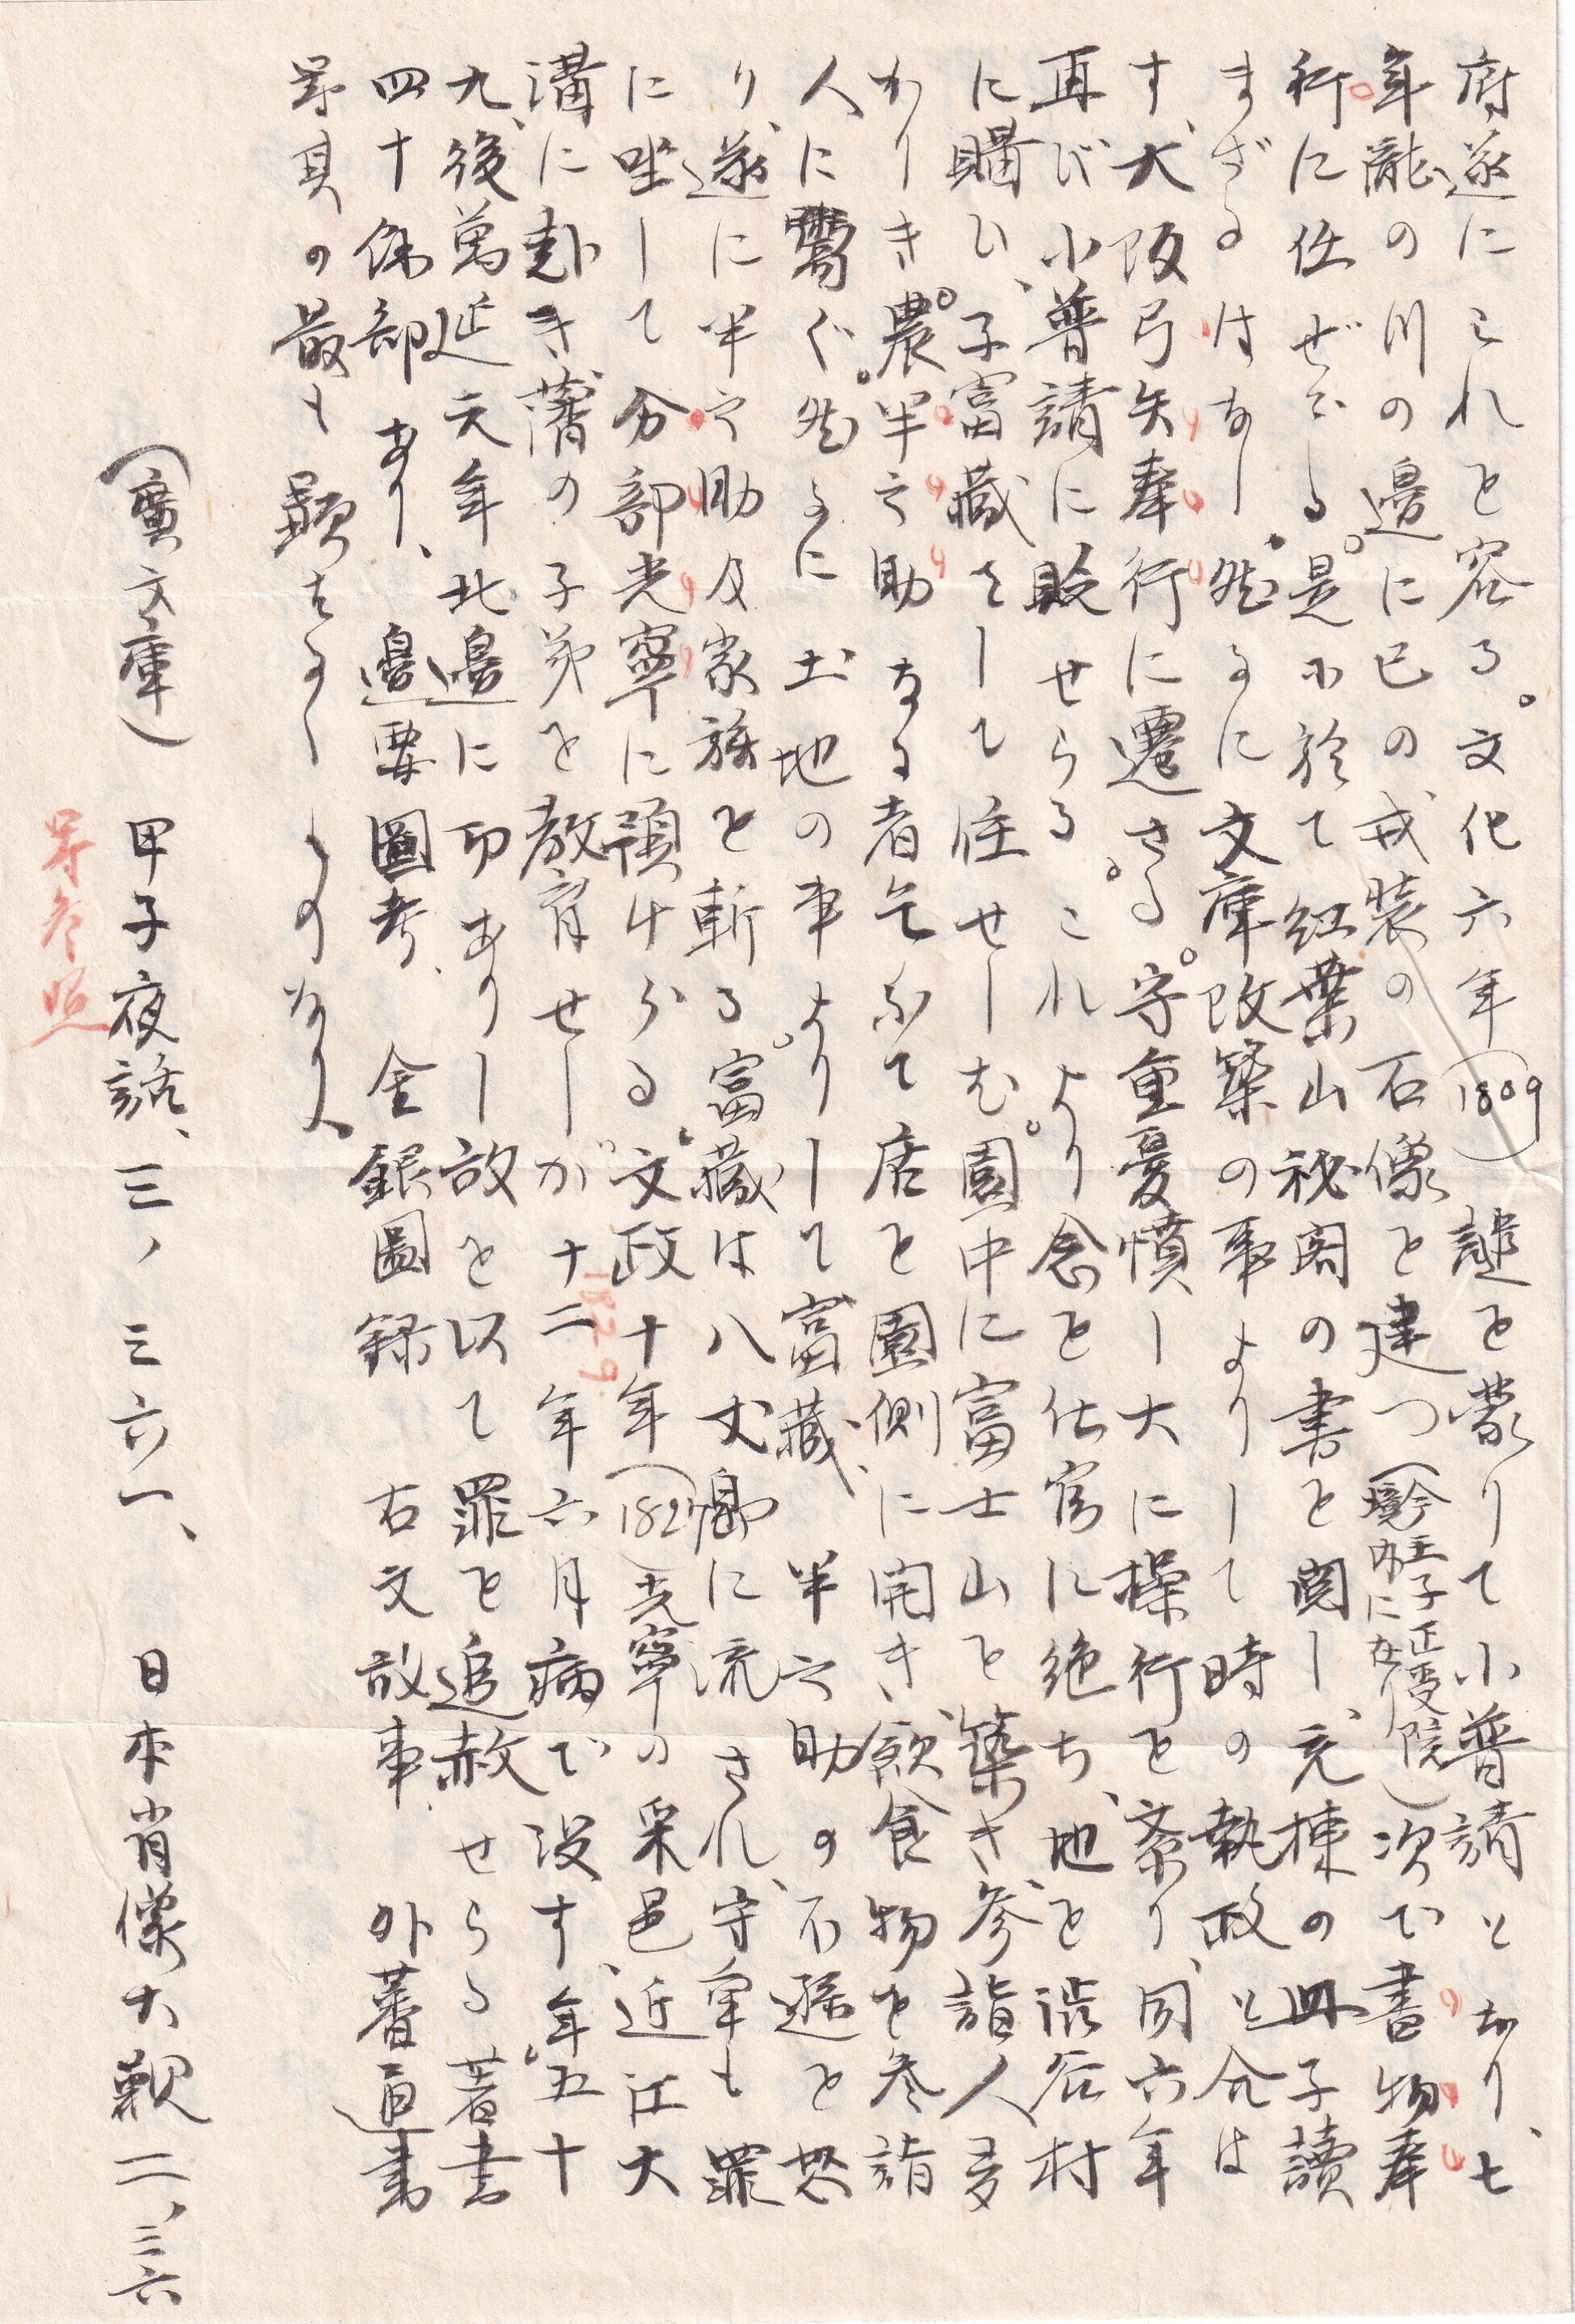 府遂にこれを容る。文化六年(1809)譴を蒙りて小普請となり、七
年瀧の川の邉に己の戎装の石像を建つ(今王子正受院境内に在り)次で書物奉
行に任ぜらる。是に於て紅葉山秘閣の書を閲し、充棟の冊子讀
まざるはなし。然るに文庫改築の事よりして時の執政と合は
す、大阪弓矢奉行に遷さる。守重憂憤し大に操行を紊り、同六年
再び小普請に貶せらる。これより念を仕官に絶ち、地を渋谷村
に購ひ、子富藏をして住せしむ。園中に富士山を築き、参詣人多
かりき。農半之助なる者乞ふて店を園側に開き、飲食物を参詣
人に鬻ぐ。然るに土地の事よりして富藏、半之助の不遜を怒
り、遂に半之助及家族を斬る。富藏は八丈島に流され、守重も罪
に坐して分部光寧に預けらる。文政十年(1827)光寧の采邑、近江大
溝に赴き、藩の子弟を教育せしが十二年六月病で没す、年五十
1829
九、後萬延元年北邉に功ありし故を以て罪を追赦せらる著書
四十餘部あり、邉要圖考、金銀圖録 古文故事 外蕃通書
等其の最も顕はるゝものなり。
(寶文庫) 甲子夜話、三ノ三六一、 日本肖像大観二ノ三六
等参照